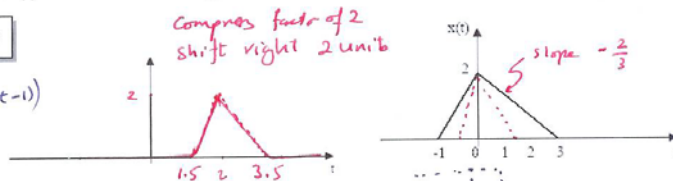 Compress factor of 2
shift right 2 units
t-1))
2
1.5 2 3.5 t
x(t)
slope - 2/3
2
-1 0 1 2 3